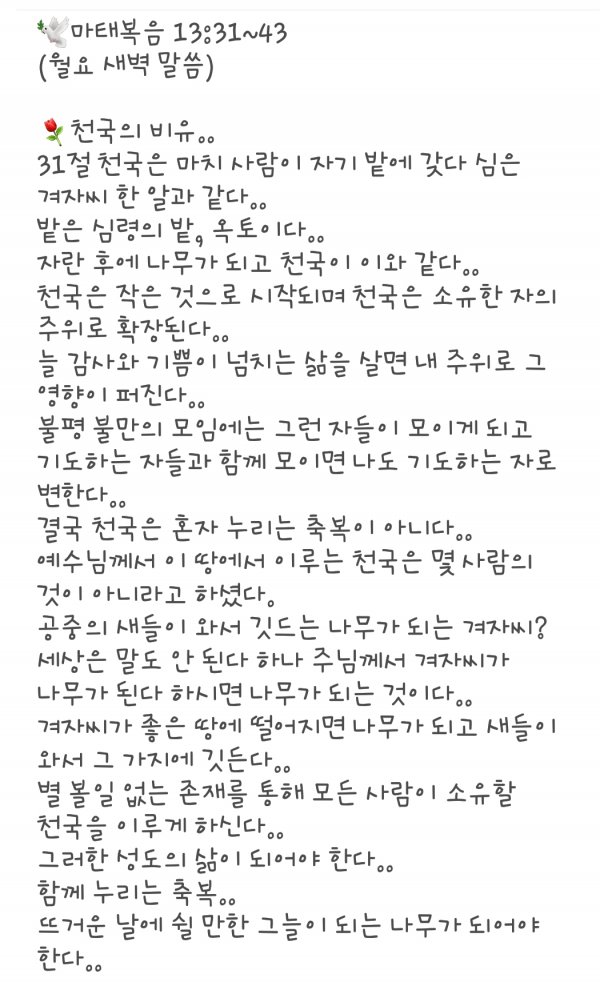 🕊마태복음 13:31~43
(월요 새벽 말씀)
🌹천국의 비유。。
31절 천국은 마치 사람이 자기 밭에 갖다 심은
겨자씨 한 알과 같다。。
밭은 심령의 밭, 옥토이다。。
자란 후에 나무가 되고 천국이 이와 같다。。
천국은 작은 것으로 시작되며 천국은 소유한 자의
주위로 확장된다。。
늘 감사와 기쁨이 넘치는 삶을 살면 내 주위로 그
영향이 퍼진다。。
불평 불만의 모임에는 그런 자들이 모이게 되고
기도하는 자들과 함께 모이면 나도 기도하는 자로
변한다。。
결국 천국은 혼자 누리는 축복이 아니다。。
예수님께서 이 땅에서 이루는 천국은 몇 사람의
것이 아니라고 하셨다。
공중의 새들이 와서 깃드는 나무가 되는 겨자씨?
세상은 말도 안 된다 하나 주님께서 겨자씨가
나무가 된다 하시면 나무가 되는 것이다。。
겨자씨가 좋은 땅에 떨어지면 나무가 되고 새들이
와서 그 가지에 깃든다。。
별 볼일 없는 존재를 통해 모든 사람이 소유할
천국을 이루게 하신다。。
그러한 성도의 삶이 되어야 한다。。
함께 누리는 축복。。
뜨거운 날에 쉴 만한 그늘이 되는 나무가 되어야
한다。。